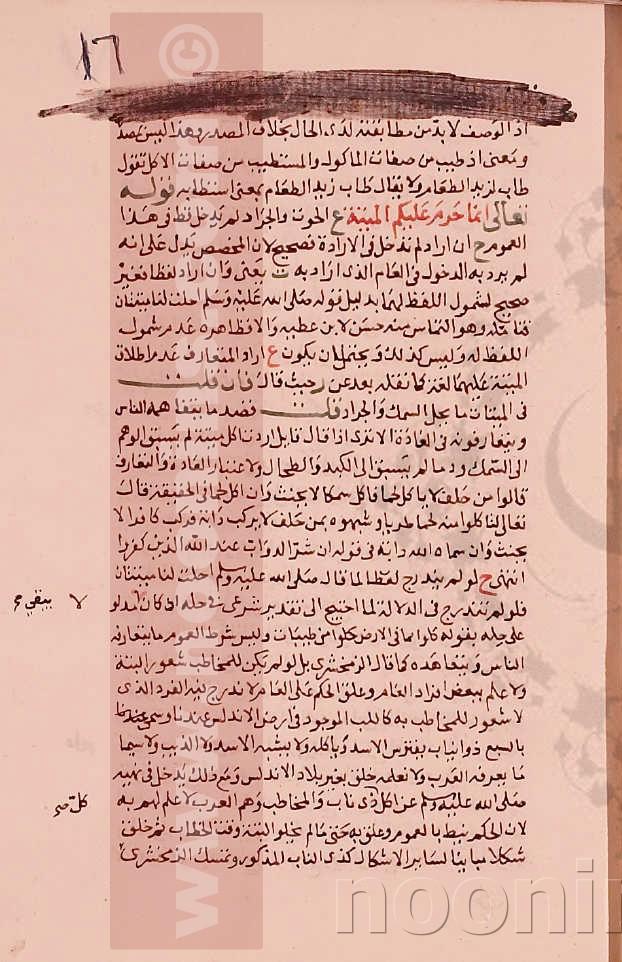 ١٦
اذ الوصف لا بد من مطابقته لذى الحال بخلاف المصدر وهذا ليس بصد
ومعنى اذ طيب من صفات الماكول والمستطيب من صفات الاكل تقول
طاب لزيد الطعام ولا يقال طاب زيد الطعام بمعنى استطابه قوله
تعالى انما حرم عليكم الميتة ع الحوت والجراد لم يدخل قط فى هذا
العموم ح ان اراد لم يدخل فى الارادة فصحيح لان المخصص يدل على انه
لم يرد به الدخول فى العام الذى اراد به يعنى وان اراد لفظا فغير
صحيح لشمول اللفظ لهما بدليل قوله صلى الله عليه وسلم احلت لنا ميتتان
قتا مله وهو التماس منه حسن لابن عطيه والا فظاهره عدم شمول
اللفظ له وليس كذلك ويحتمل ان يكون ع اراد المتعارف عدم اطلاق
الميتة عليهما لغة كما نقله بعد عن حيث قال فان قلت
فى الميتات ما يحل السمك والجراد قلت قصد ما يتفاهمه الناس
ويتعارفونه فى العادة الا ترى اذا قال قايل اردت اكل ميتة لم يسبق الوهم
الى السمك ودما لم يسبق الى الكبد والطحال ولاعتبار العادة والتعارف
قالوا من حلف لا ياكل لحما فاكل سمكا لا يحنث وان اكل لحما فى الحقيقة قال
تعالى لتاكلوا منه لحما طريا وشبهوه بمن حلف لا يركب دابة فركب كافرا لا
يحنث وان سماه الله دابة فى قوله ان شر الدواب عند الله الذين كفروا
انتهى ح لو لم يندرج لفظا لما قال صلى الله عليه وسلم احلت لنا ميتتان
فلو لم تندرج فى الدلالة لما احتيج الى تقدير شرعى فى حله اذ كان مدلو
لا يبقى
على حله بقوله كلوا مما فى الارض كلوا من طيبات وليس شرط العموم ما يتعارفه
الناس ويتعاهده كما قال الزمخشرى بل لو لم يكن للمخاطب شعور البتة
ولا علم ببعض افراد العام وعلق الحكم على العام لاندرج فيه الفرد الذى
لا شعور للمخاطب به كالسبع الموجود فى ارض الاندلس عندنا وسمى عندنا
بالسبع ذو انياب يفترس الاسد وياكله ولا يشبه الاسد ولا الذيب ولا شيا
مما يعرفه العرب ولا نعلمه خلق بغير بلاد الاندلس ومع ذلك يدخل فى نهيه
صلى الله عليه وسلم عن اكل ذى ناب والمخاطب وهم العرب لا علم لهم به
كل صح
لان الحكم نيط بالعموم وعلق به حتى ما لم يخلق البتة وقت الخطاب ثم خلق
شكلا مباينا لساير الاشكال كذى الناب المذكور وتمسك الزمخشرى
www.
noonin